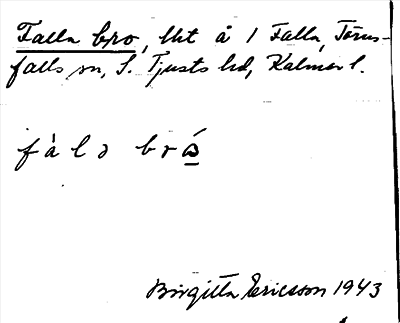 Falla bro, Utt å 1 Falla, Törns-
falls sn, S. Tjusts hd, Kalmar l.
fàlɔ brɷ́
Birgitta Ericsson 1943